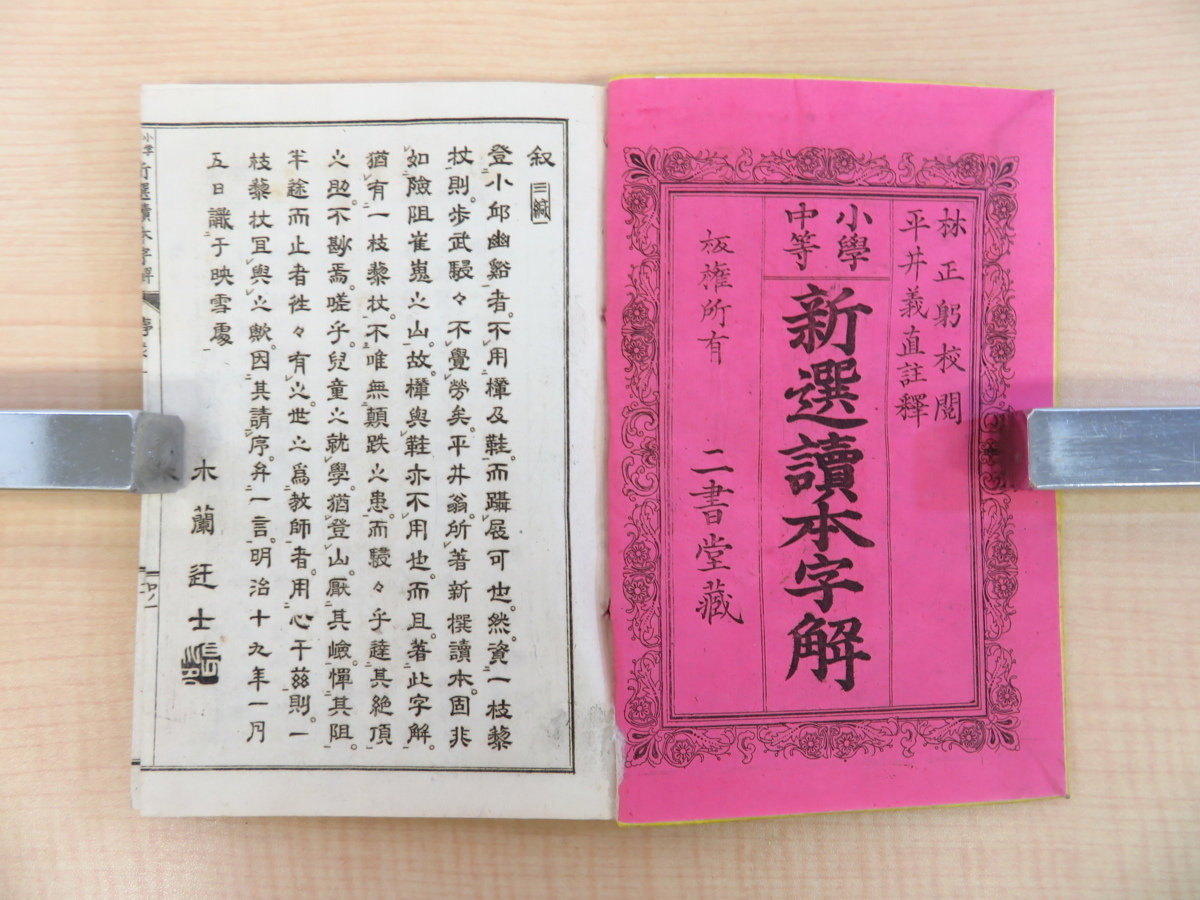 林正躬校閲
平井義直註釋
小學
中等
新選讀本字解
板權所有
二書堂藏
叙
登小邱幽谿者。不用樏及鞋。而躡屐可也。然資一枝藜
杖。則步武駸々不覺勞矣。平井翁所著新撰讀本。固非
如險阻崔嵬之山。故樏與鞋亦不用也。而且著此字解。
猶有一枝藜杖。不唯無顛跌之患。而駸々乎達其絶頂
之㔟。不尠焉。嗟乎。兒童之就學。猶登山。厭其嶮憚其阻。
半途而止者徃々有之。世之爲教師者。用心于兹則。一
枝藜杖冝與之歟。因其請序。弁一言。明治十九年一月
五日識于映雪處
木蘭迂士
小學 新選讀本字解